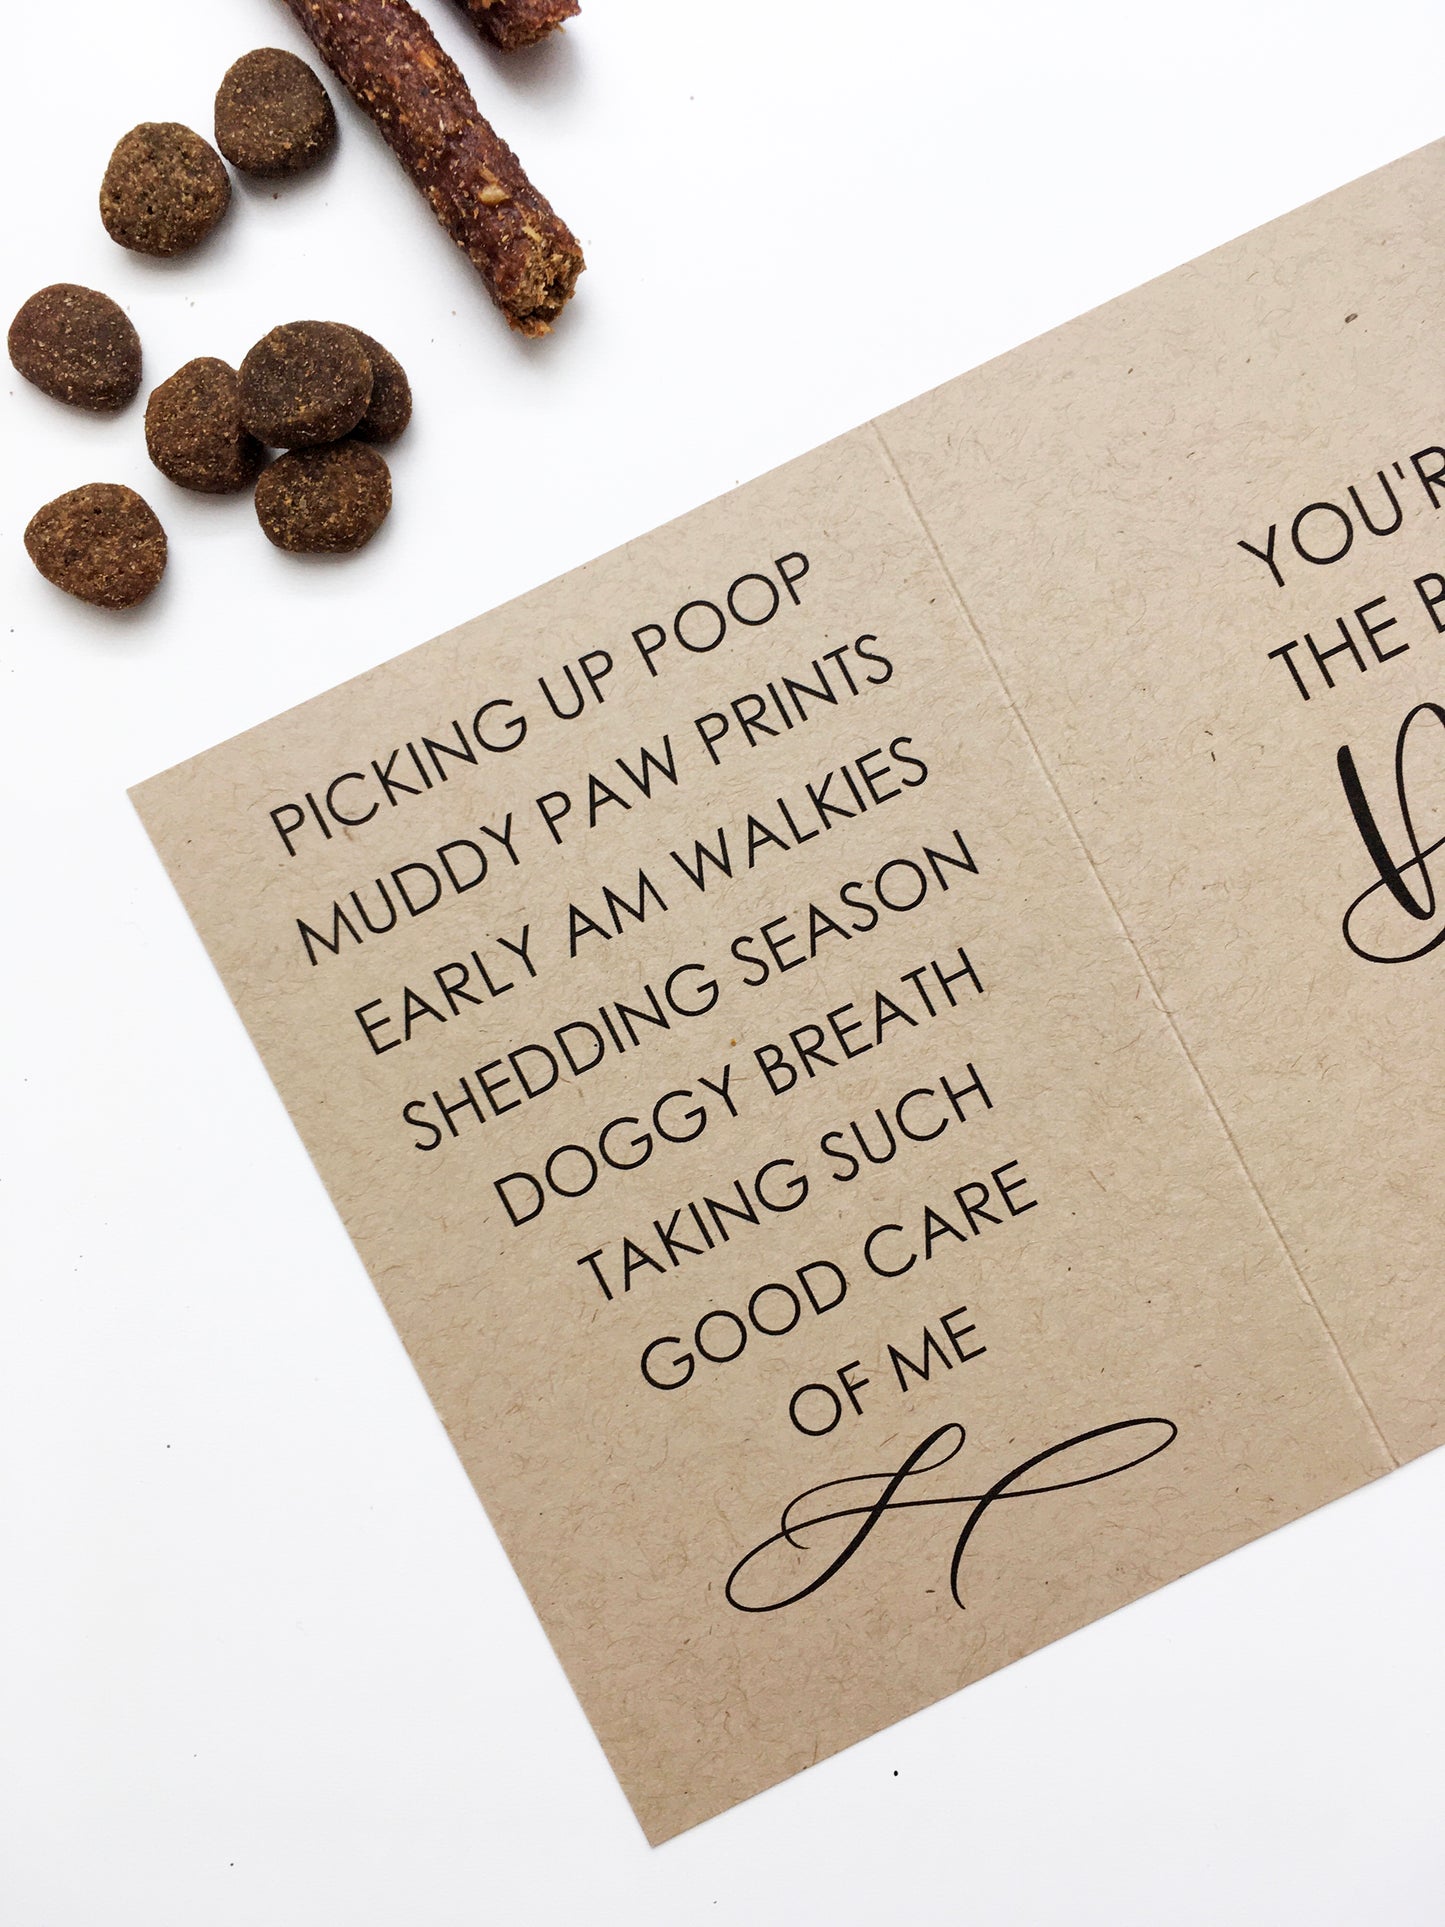 PICKING UP POOP
MUDDY PAW PRINTS
EARLY AM WALKIES
SHEDDING SEASON
DOGGY BREATH
TAKING SUCH
GOOD CARE
OF ME
THE